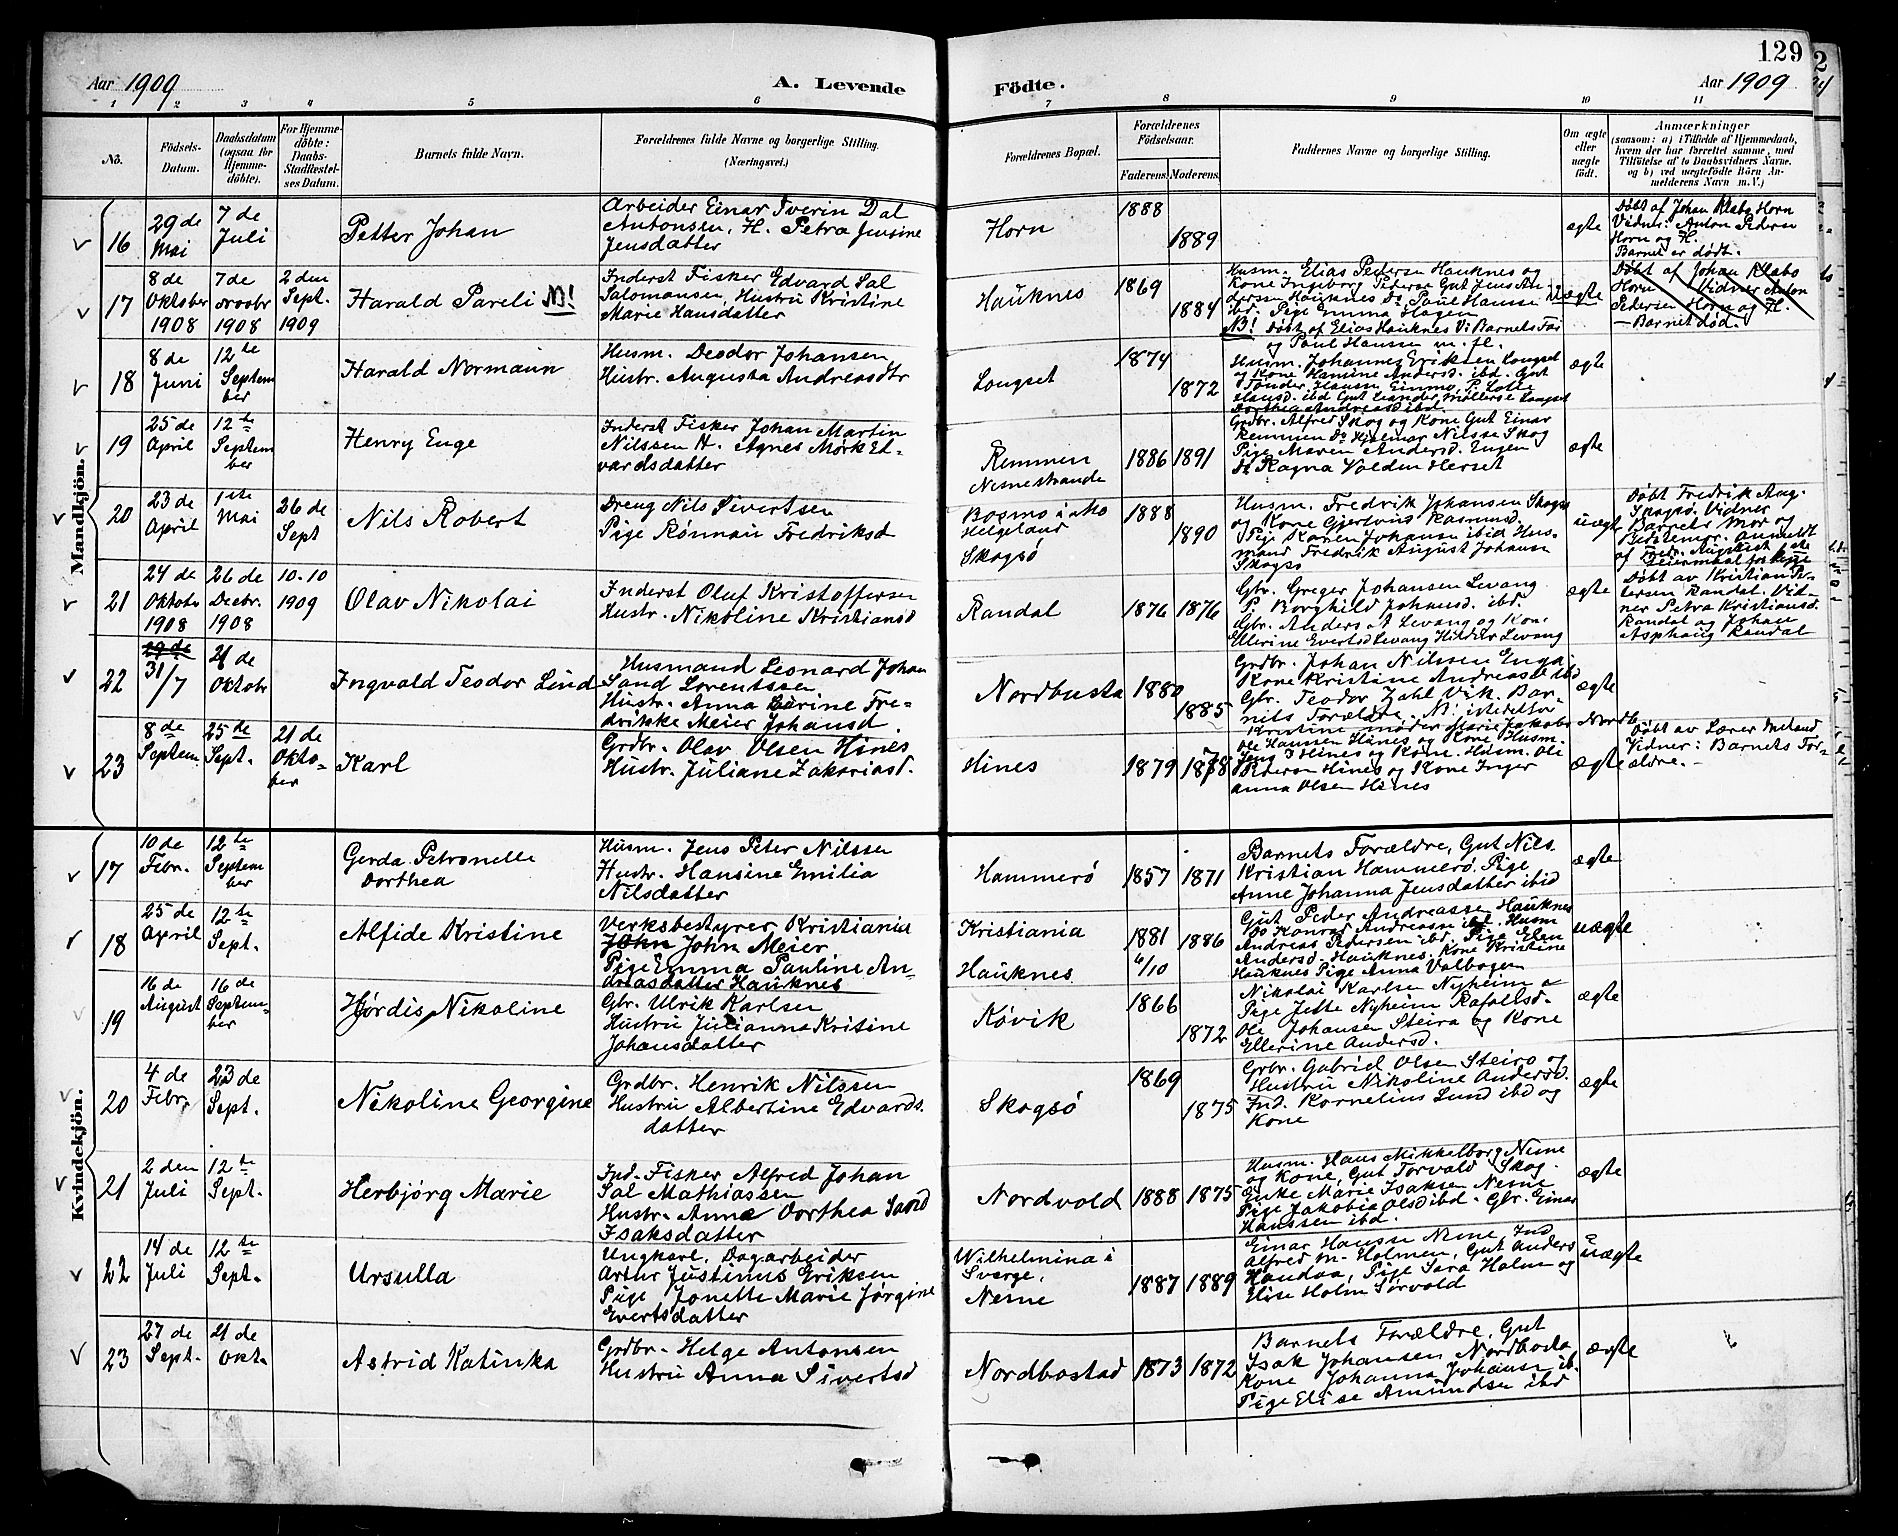 129
Aar 1909 A. Levende Födte. Aar 1909
1 2 3 4 5 6 7 8 9 10 11
No.
Födsels-Datum.
Daabsdatum (ogsaa for Hjemmedöbte).
For Hjemmedöbte: Daabs-Stadfæstelses Datum.
Barnets fulde Navn.
Forældrenes fulde Navne og borgerlige Stilling. (Næringsvei.)
Forældrenes Bopæl.
Forældrenes Födselsaar.
Faderens. Moderens.
Faddernes Navne og borgerlige Stilling.
Om ægte eller uægte födt.
Anmærkninger
(saasom: a) i Tilfælde af Hjemmedaab, hvem der har forrettet samme, med Tilföielse af to Daabsvidners Navne. og b) ved uægtefödte Börn Anmelderens Navn m. V.)
Mandkjön.
16
29 de Mai
7 de Juli
Petter Johan
Arbeider Einar Tverin Dal
Antonsen, H. Petra Jensine
Jensdatter
Horn
1888
1889
ægte
Döbt af Johan Klabo Horn
Vidner: Anton Pedersen
Horn og H.
Barnet er dødt.
17
8 de Oktober 1908
7 de Novbr 1908
2 den Sept. 1909
Harald Pareli NB!
Inderst Fisker Edvard Sal
Salomonsen, Hustru Kristine
Marie Hansdatter
Hauknes
1869
1884
Husm. Elias Pedersen Hauknes og
Kone Ingeborg Pederse Gut Jens An-
dersen Hauknes Do Paul Hanssen
ibd. Pige Emma Hagen
NB! Döbt af Elias Hauknes Vi Barnets Far
og Paul Hanssen m. fl.
ægte
Döbt af Johan Klabo
Horn Vidner Anton
Pedersen Horn og H.
- Barnet död.
18
8 de Juni
12 te September
Harald Normann
Husm. Deodor Johansen
Hustr. Augusta Andreasdtr
Longset
1874
1872
Husm. Johannes Eriksen Longset
og Kone Hansine Anders. ibd. Gut
Tønder Hansen Einmo, P. Lotte
Hansd. ibd Gut Leander Møllerse Longset
Dorthea Andreasd ibd.
ægte
19
25 de April
12 te September
Henry Enge
Inderst Fisker Johan Martin
Nilssen H. Agnes Mörk Ed-
vardsdatter
Remmen
Nesnestrande
1886 1891
Grdbr. Alfred Skog og Kone Gut Einar
Remmen Do Hjelmar Nilsse Skog
Pige Maren Andersd. Engen
Do Ragna Volden Herset
ægte
20
23 de April
1ste Mai
26 de Sept
Nils Robert
Dreng Nils Sivertsen
Pige Rönnau Fredriksd
Bosmo i Mo
Helgeland
Skogsö
1888
1890
Husm. Fredrik Johansen Skogsö
og Kone Gjertine Rasmusd.
Pige Karen Johanse ibid Hus-
mand Fredrik August Johanse
Skogsö
uægte
Döbt Fredrik Aug.
Skogsö. Vidner
Barnets Mor og
Bedstemor. Anmeldt
af Fredr. August
21
24 de Oktober 1908
26 de Decbr. 1908
10-10 1909
Olav Nikolai
Inderst Oluf Kristoffersen
Hustr. Nikoline Kristiansd
Randal
1876 1876
Gbr. Greger Johansen Levang
P. Borghild Johansd. ibd.
Gbr. Anders A Levang og Kone
Ellerine Evertsd Levang Hilder Levang
ægte
Döbt av Kristian Pe-
tersen Randal. Vid-
ner Petra Kristiansd.
Randal og Johan
Asphaug Randal
22
31/7
21 de Oktobr
Ingvald Teodor Lind
Husmand Leonard Johan
Sand Lorentssen
Hustr. Anna Larine Fre-
drikke Meier Johansd.
Nordbusta
1880
1885
Grdbr. Johan Nilssen Enga
Kone Kristine Andreasd ibd
Gbr. Teodor Zahl Vik. Bar-
nets Forældre. N! istedetfor
Kristine möder Marie Jakobs
Nordb
ægte
23
8 de Septem.
25 de Sept.
21 de Oktober
Karl
Grdbr. Olav Olsen Hines
Hustr. Juliane Zakariasd.
Hines
1879 1878
Ole Hansen Hines og Kone Husm.
Jens J Hines og Kone. Husm. Ole
Pedersen Hines og Kone Inger
Anna Olsen Hines
ægte
Döbt av Lærer Meland
Vidner: Barnets For-
ældre. -
Kvindekjön.
17
10 de Febr.
12 te September
Gerda Petronelle
Dorthea
Husm. Jens Peter Nilssen
Hustr. Hansine Emilia
Nilsdatter
Hammerö
1857 1871
Barnets Forældre, Gut Nils
Kristian Hammerö. Pige
Anne Johanna Jensdatter ibid
ægte
18
25 de April
12 te Sept.
Alfide Kristine
Verksbestyrer Kristiania
John John Meier
Pige Emma Pauline An-
dreasdatter Hauknes
Kristiania
Hauknes
1881 1886
6/10
Gut Peder Andreasse Hauknes
Do Konrad Andreasse ibd. Husm
Andreas Pedersen ibd. Pige Elen
Andersd. Hauknes. Kone Kristine
Hauknes Pige Anna Valbogen
uægte
19
16 de August
16 de September
Hjördis Nikoline
Gbr. Ulrik Karlsen
Hustru Julianna Kristine
Johansdatter
Kövik
1866
1872
Nikolai Karlsen Nyheim
Pige Jette Nyheim Rafaelsd.
Ole Johansen Steira og Kone
Ellerine Andersd.
ægte
20
4 de Febr
23 de Sept.
Nikoline Georgine
Grdbr. Henrik Nilssen
Hustru Albertine Edvards
datter
Skogsö
1869
1875
Grbr. Gabriel Olsen Steiro og
Hustru Nikoline Andersd.
Ind. Kornelius Lund ibd og
Kone
ægte
21
2 den Juli
12 te Sept.
Herbjörg Marie
Ind. Fisker Alfred Johan
Sal Mathiassen
Hustr. Anna Dorthea Sand
Isaksdatter
Nordvold
1888 1875
Husm. Hans Mikkelborg Nesne
og Kone, Gut Torvald Skog.
Enke Marie Isaksen Nesne
Pige Jakobia Olsd ibd. Gbr. Einar
Hanssen ibd.
ægte
22
14 de Juli
12 te Sept.
Ursulla
Ungkarl, Dagarbeider
Artur Justinus Eriksen
Pige Jonette Marie Jörgine
Evertsdatter
Wilhelmina i
Sverge,
Nesne
1887 1889
Einar Hansen Nesne Ind
Alfred M. Holmen, Gut Anders
Handaa, Pige Sara Holm og
Elise Holm Sörvold
uægte
23
27 de Sept.
21 de Okt.
Astrid Katinka
Grdbr. Helge Antonsen
Hustru Anna Sivertsd
Nordbostad
1873 1872
Barnets Forældre, Gut
Isak Johansen Nordboda
Kone Johanna Johanse ib.
Pige Elise Amundse ibd
ægte